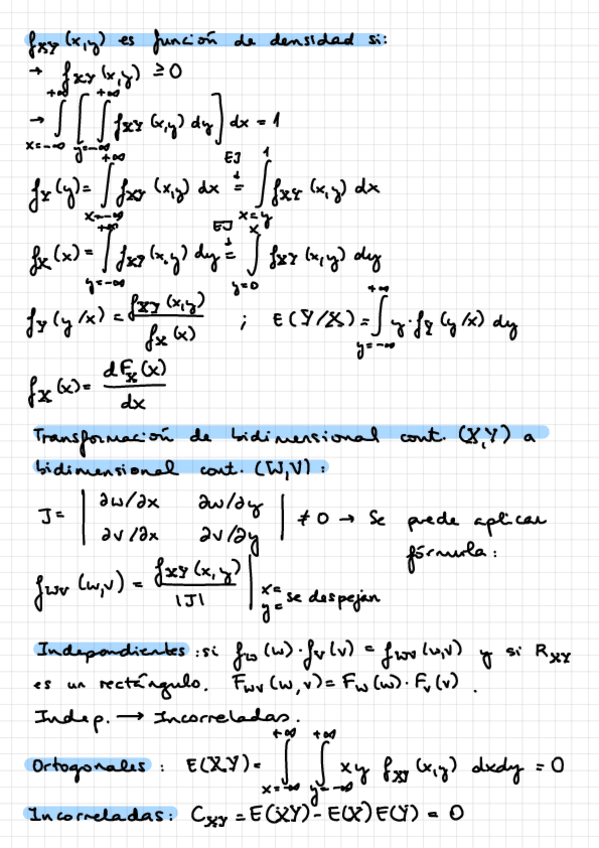 f_XY (x,y) es función de densidad si:
→ f_XY (x,y) ≥ 0
→ ∫_{x=-∞}^{+∞} [ ∫_{y=-∞}^{+∞} f_XY (x,y) dy ] dx = 1
f_Y (y) = ∫_{x=-∞}^{+∞} f_XY (x,y) dx =^{EJ ↓} ∫_{x=y}^{1} f_XY (x,y) dx
f_X (x) = ∫_{y=-∞}^{+∞} f_XY (x,y) dy =^{EJ ↓} ∫_{y=0}^{x} f_XY (x,y) dy
f_Y (y/x) = f_XY (x,y) / f_X (x) ; E(Y/X) = ∫_{y=-∞}^{+∞} y · f_Y (y/x) dy
f_X (x) = dF_X (x) / dx
Transformación de bidimensional cont. (X,Y) a
bidimensional cont. (W,V):
J = | ∂w/∂x ∂w/∂y |
| ∂v/∂x ∂v/∂y | ≠ 0 → Se puede aplicar
fórmula:
f_WV (w,v) = f_XY (x,y) / |J| | x= y= se despejan
Independientes: si f_W (w) · f_V (v) = f_WV (w,v) y si R_XY
es un rectángulo. F_WV (w,v) = F_W (w) · F_V (v).
Indep. → Incorreladas.
Ortogonales: E(XY) = ∫_{x=-∞}^{+∞} ∫_{y=-∞}^{+∞} xy f_XY (x,y) dxdy = 0
Incorreladas: C_XY = E(XY) - E(X)E(Y) = 0